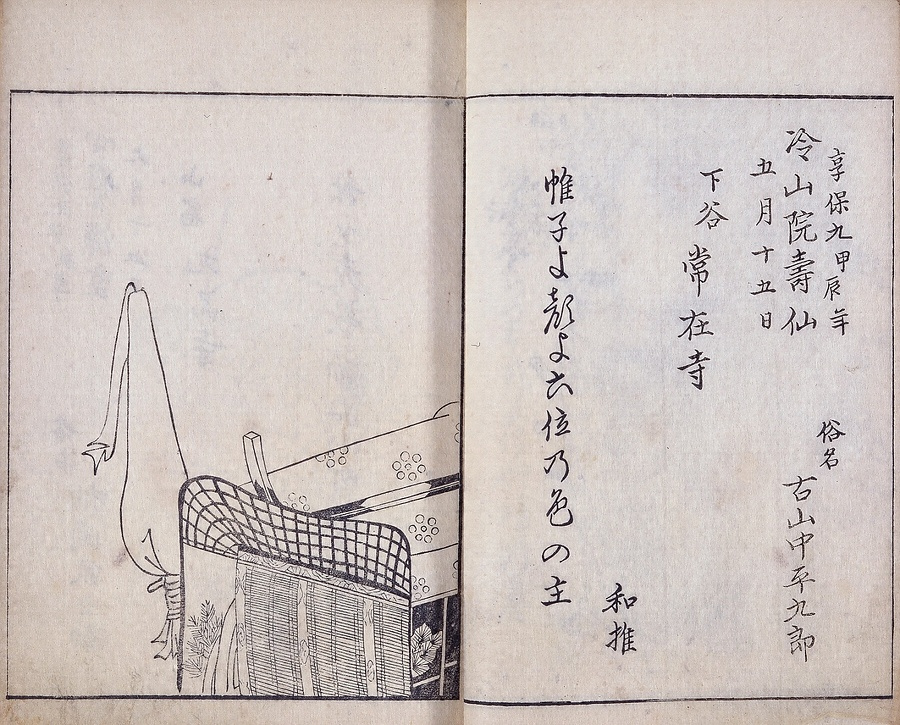 享保九甲辰年
冷山院壽仙
五月十五日
俗名
古山中平九郎
下谷常在寺
和推
帷子よ顔よ六位乃色の主